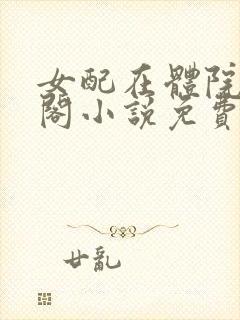 女配在體院
閣小說免費
廿亂